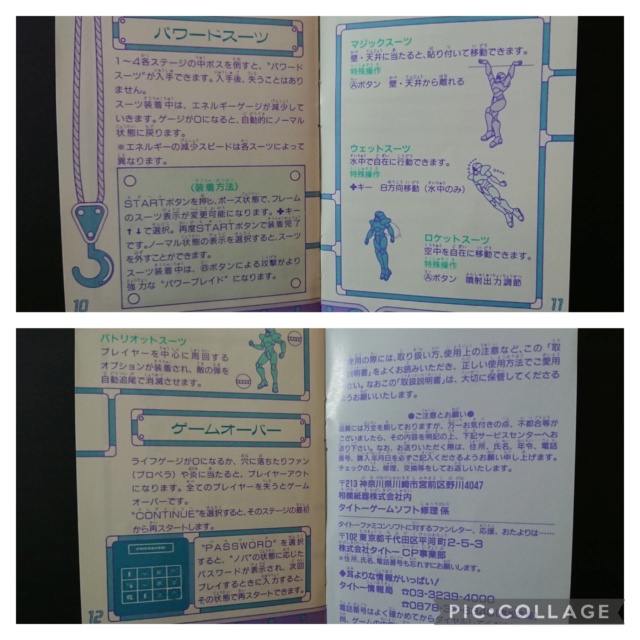 パワードスーツ
1〜4各ステージの中ボスを倒すと、“パワード
スーツ”が入手できます。入手後、失うことはあり
ません。
スーツ装着中は、エネルギーゲージが減少して
いきます。ゲージが0になると、自動的にノーマル
状態に戻ります。
※エネルギーの減少スピードは各スーツによって
異なります。
(装着方法)
STARTボタンを押し、ポーズ状態で、フレーム
のスーツ表示が変更可能になります。✚キー
↑↓で選択。再度STARTボタンで装着完了
です。ノーマル状態の表示を選択すると、スーツ
を外すことができます。
スーツ装着中は、Ⓑボタンによる攻撃がより
強力な“パワーブレイド”になります。
10
マジックスーツ
壁・天井に当たると、貼り付いて移動できます。
特殊操作
Ⓐボタン 壁・天井から離れる
ウェットスーツ
水中で自在に行動できます。
特殊操作
✚キー 8方向移動(水中のみ)
ロケットスーツ
空中を自在に移動できます。
特殊操作
Ⓐボタン 噴射出力調節
11
パトリオットスーツ
プレイヤーを中心に周回する
オプションが装着され、敵の弾を
自動追尾で消滅させます。
ゲームオーバー
ライフゲージが0になるか、穴に落ちたりファン
(プロペラ)や炎に当たると、プレイヤーアウト
になります。全てのプレイヤーを失うとゲーム
オーバーです。
“CONTINUE”を選択すると、そのステージの最初
から再スタートします。
“PASSWORD”を選択
すると、“ノバ”の状態に応じた
パスワードが表示され、次回
プレイするときに入力すると、
その状態で再スタートできます。
12
使用の際には、取り扱い方、使用上の注意など、この「取
説明書」をよくお読みいただき、正しい使用方法でご愛用
ください。なおこの「取扱説明書」は、大切に保管してくださる
ようお願いいたします。
●ご注意とお願い●
品質には万全を期しておりますが、万一お気付きの点、不都合等が
ございましたら、その内容を明記の上、下記サービスセンターへお
送り下さい。なお、お送りいただく際は、住所、氏名、年令、電話
番号、購入年月日を必ずご記入くださるようお願い申し上げます。
チェックの上、修理、交換等をしてお返しいたします。
〒213 神奈川県川崎市宮前区野川4047
相模紙器株式会社内
タイトーゲームソフト修理係
タイトーファミコンソフトに対するファンレター、応援、おたよりは……
〒102 東京都千代田区平河町2-5-3
株式会社タイトー CP事業部
※住所、氏名、電話番号も忘れずにお願いします。
◆耳よりな情報がいっぱい!
タイトー情報局 ☎03-3239-4000
☎0878-
電話番号はよく確かめてから
PIC•COLLAGE